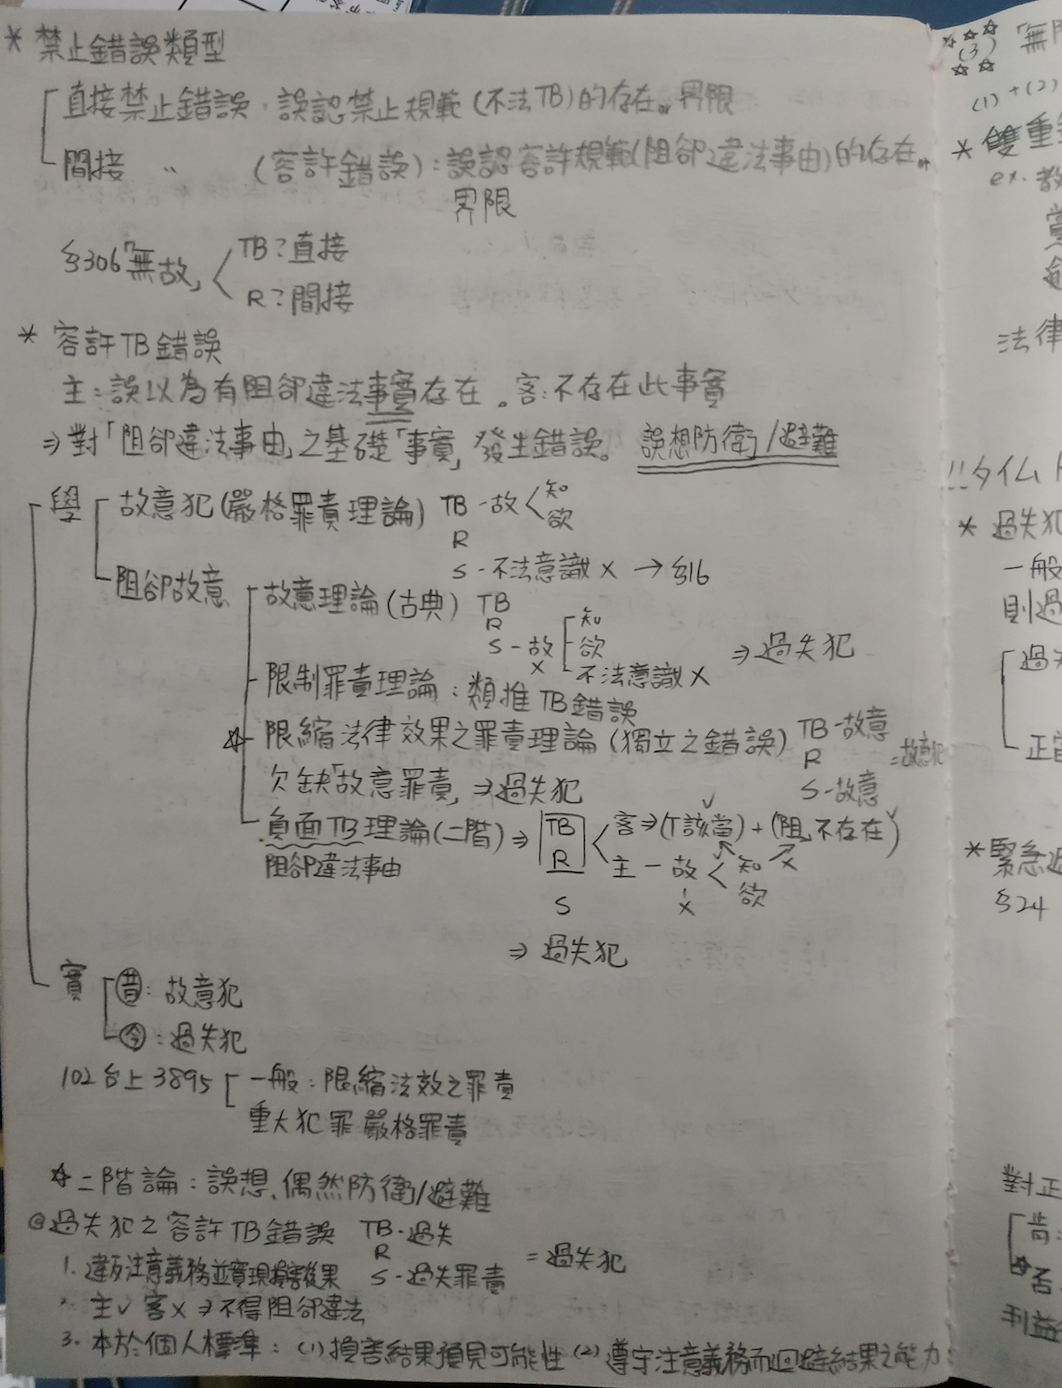 * 禁止錯誤類型
直接禁止錯誤.誤認禁止規範(不法TB)的存在or界限
間接 〃 (容許錯誤):誤認容許規範(阻卻違法事由)的存在or
界限
§306「無故」 TB?直接
R?間接
* 容許TB錯誤
主:誤以為有阻卻違法事實存在。客:不存在此事實
⇒對「阻卻違法事由」之基礎「事實」發生錯誤。 誤想防衛/避難
學 故意犯(嚴格罪責理論) TB-故 知
欲
R
S-不法意識X→§16
阻卻故意 故意理論(古典) TB
R
S-故 知
欲
X 不法意識X ⇒過失犯
限制罪責理論:類推TB錯誤
☆ 限縮法律效果之罪責理論(獨立之錯誤) TB-故意
R =故意犯
欠缺「故意罪責」⇒過失犯 S-故意
負面TB理論(二階)⇒ TB 客⇒(T該當)+(阻」不存在)
阻卻違法事由 R 主-故 知 X
欲
S X
⇒過失犯
實 昔:故意犯
今:過失犯
102台上3895 一般:限縮法效之罪責
重大犯罪 嚴格罪責
☆二階論:誤想、偶然防衛/避難
@過失犯之容許TB錯誤 TB.過失
R =過失犯
1.違反注意義務並實現損害後果 S-過失罪責
2.主✓客X⇒不得阻卻違法
3.本於個人標準:(1)損害結果預見可能性(2)遵守注意義務而迴避結果之能力
☆☆☆
(3) 「無
☆☆
(1)+(2)
* 雙重
ex.教
法律
!!タイム
* 過失犯
一般
則過
過失
正當
*緊急避
§24
對正
肯:
☆否
利益